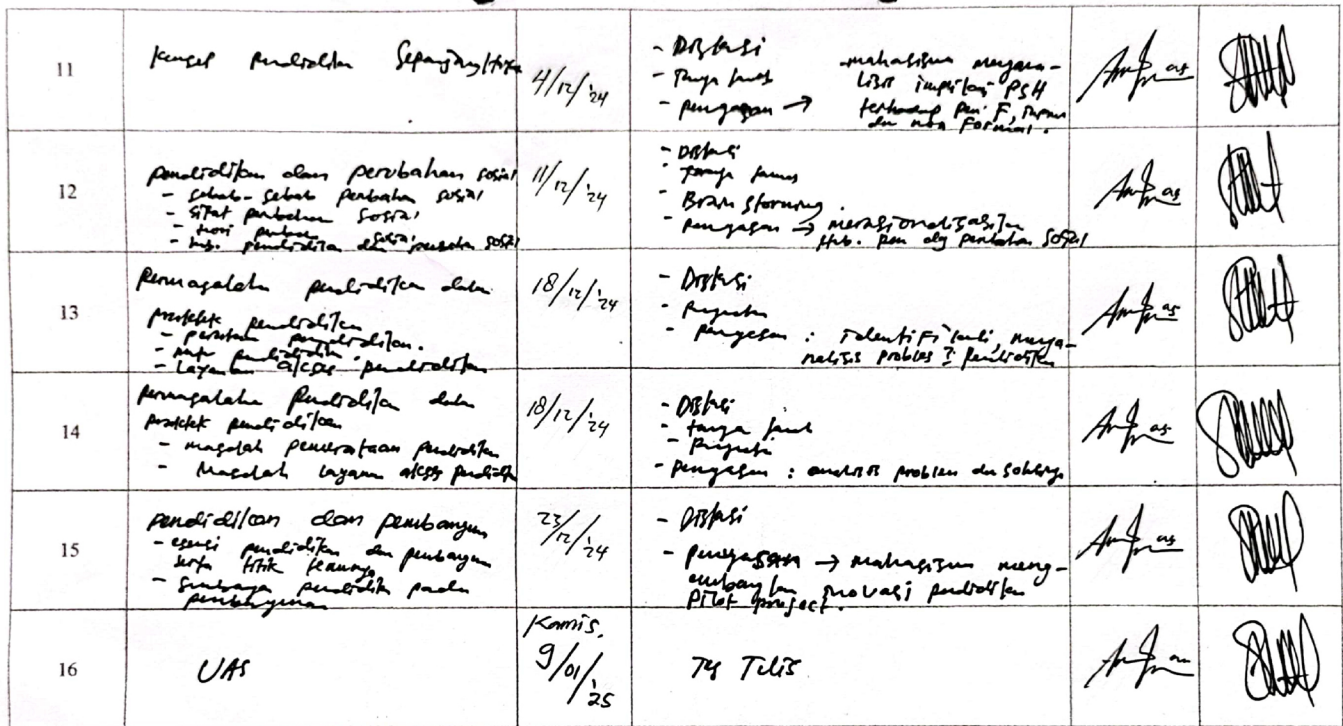 11
Konsep pendidikan Sepanjang Hayat
4/12/'24
- Diskusi
- Tanya jawab
- penugasan → mahasiswa mengana-
lisis implikasi PSH
terhadap pen. F,
dan non Formal.
12
pendidikan dan perubahan sosial
- sebab-sebab perubahan sosial
- sifat perubahan sosial
- teori perubahan sosial
- hub. pendidikan dan perubahan sosial
11/12/'24
- Diskusi
- Tanya jawab
- Brain storming.
- penugasan → merasionalisasikan
Hub. pen dg perubahan sosial
13
Permasalahan pendidikan dalam
praktek pendidikan
- pendidikan.
- mutu pendidikan.
- Layanan akses pendidikan
18/12/'24
- Diskusi
- penugasan : identifikasi, menga-
nalisis problem pendidikan
14
permasalahan pendidikan dalam
praktek pendidikan
- masalah pemerataan pendidikan
- Masalah layanan akses pendidikan
18/12/'24
- Diskusi
- tanya jawab
- penugasan : analisis problem dan solusinya
15
pendidikan dan pembangunan
- esensi pendidikan dan pembangunan
serta titik temunya
- Sumbangan pendidikan pada
pembangunan
23/12/'24
- Diskusi
- penugasan → mahasiswa meng-
embangkan inovasi pendidikan
pilot project.
16
UAS
Kamis,
9/01/'25
Tes Tulis